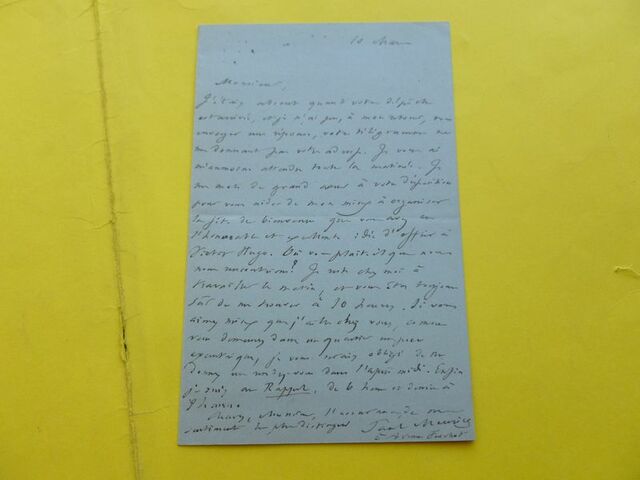 10 Mars
Monsieur,
J'étais absent quand votre dépêche
est arrivée, et je n'ai pas pu, à mon retour, vous
envoyer une réponse, votre télégramme ne
me donnant pas votre adresse. Je vous ai
attendu toute la matinée. Je
me mets de grand cœur à votre disposition
pour vous aider de mon mieux à organiser
la fête de bienvenue que vous avez eu
l'honorable et excellente idée d'offrir à
Victor Hugo. Où vous plaît-il que nous
nous rencontrions ? Je reste chez moi à
travailler le matin, et vous êtes toujours
sûr de me trouver à 10 heures. Si vous
aimez mieux que j'aille chez vous, comme
vous demeurez dans un quartier un peu
excentrique, je vous serais obligé de me
donner un rendez-vous dans l'après midi. Enfin
je suis au Rappel, de 6 heures et demie à
heures.
Monsieur, l'assurance de mes
sentiments les plus distingués
Paul Meurice